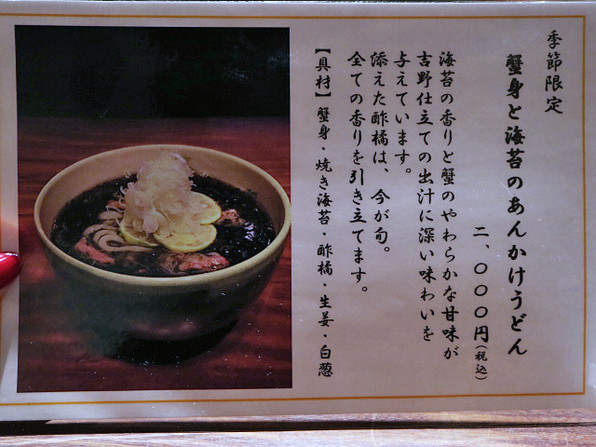 季節限定
蟹身と海苔のあんかけうどん
二、〇〇〇円(税込)
海苔の香りと蟹のやわらかな甘味が
吉野仕立ての出汁に深い味わいを
与えています。
添えた酢橘は、今が旬。
全ての香りを引き立てます。
【具材】蟹身・焼き海苔・酢橘・生姜・白葱